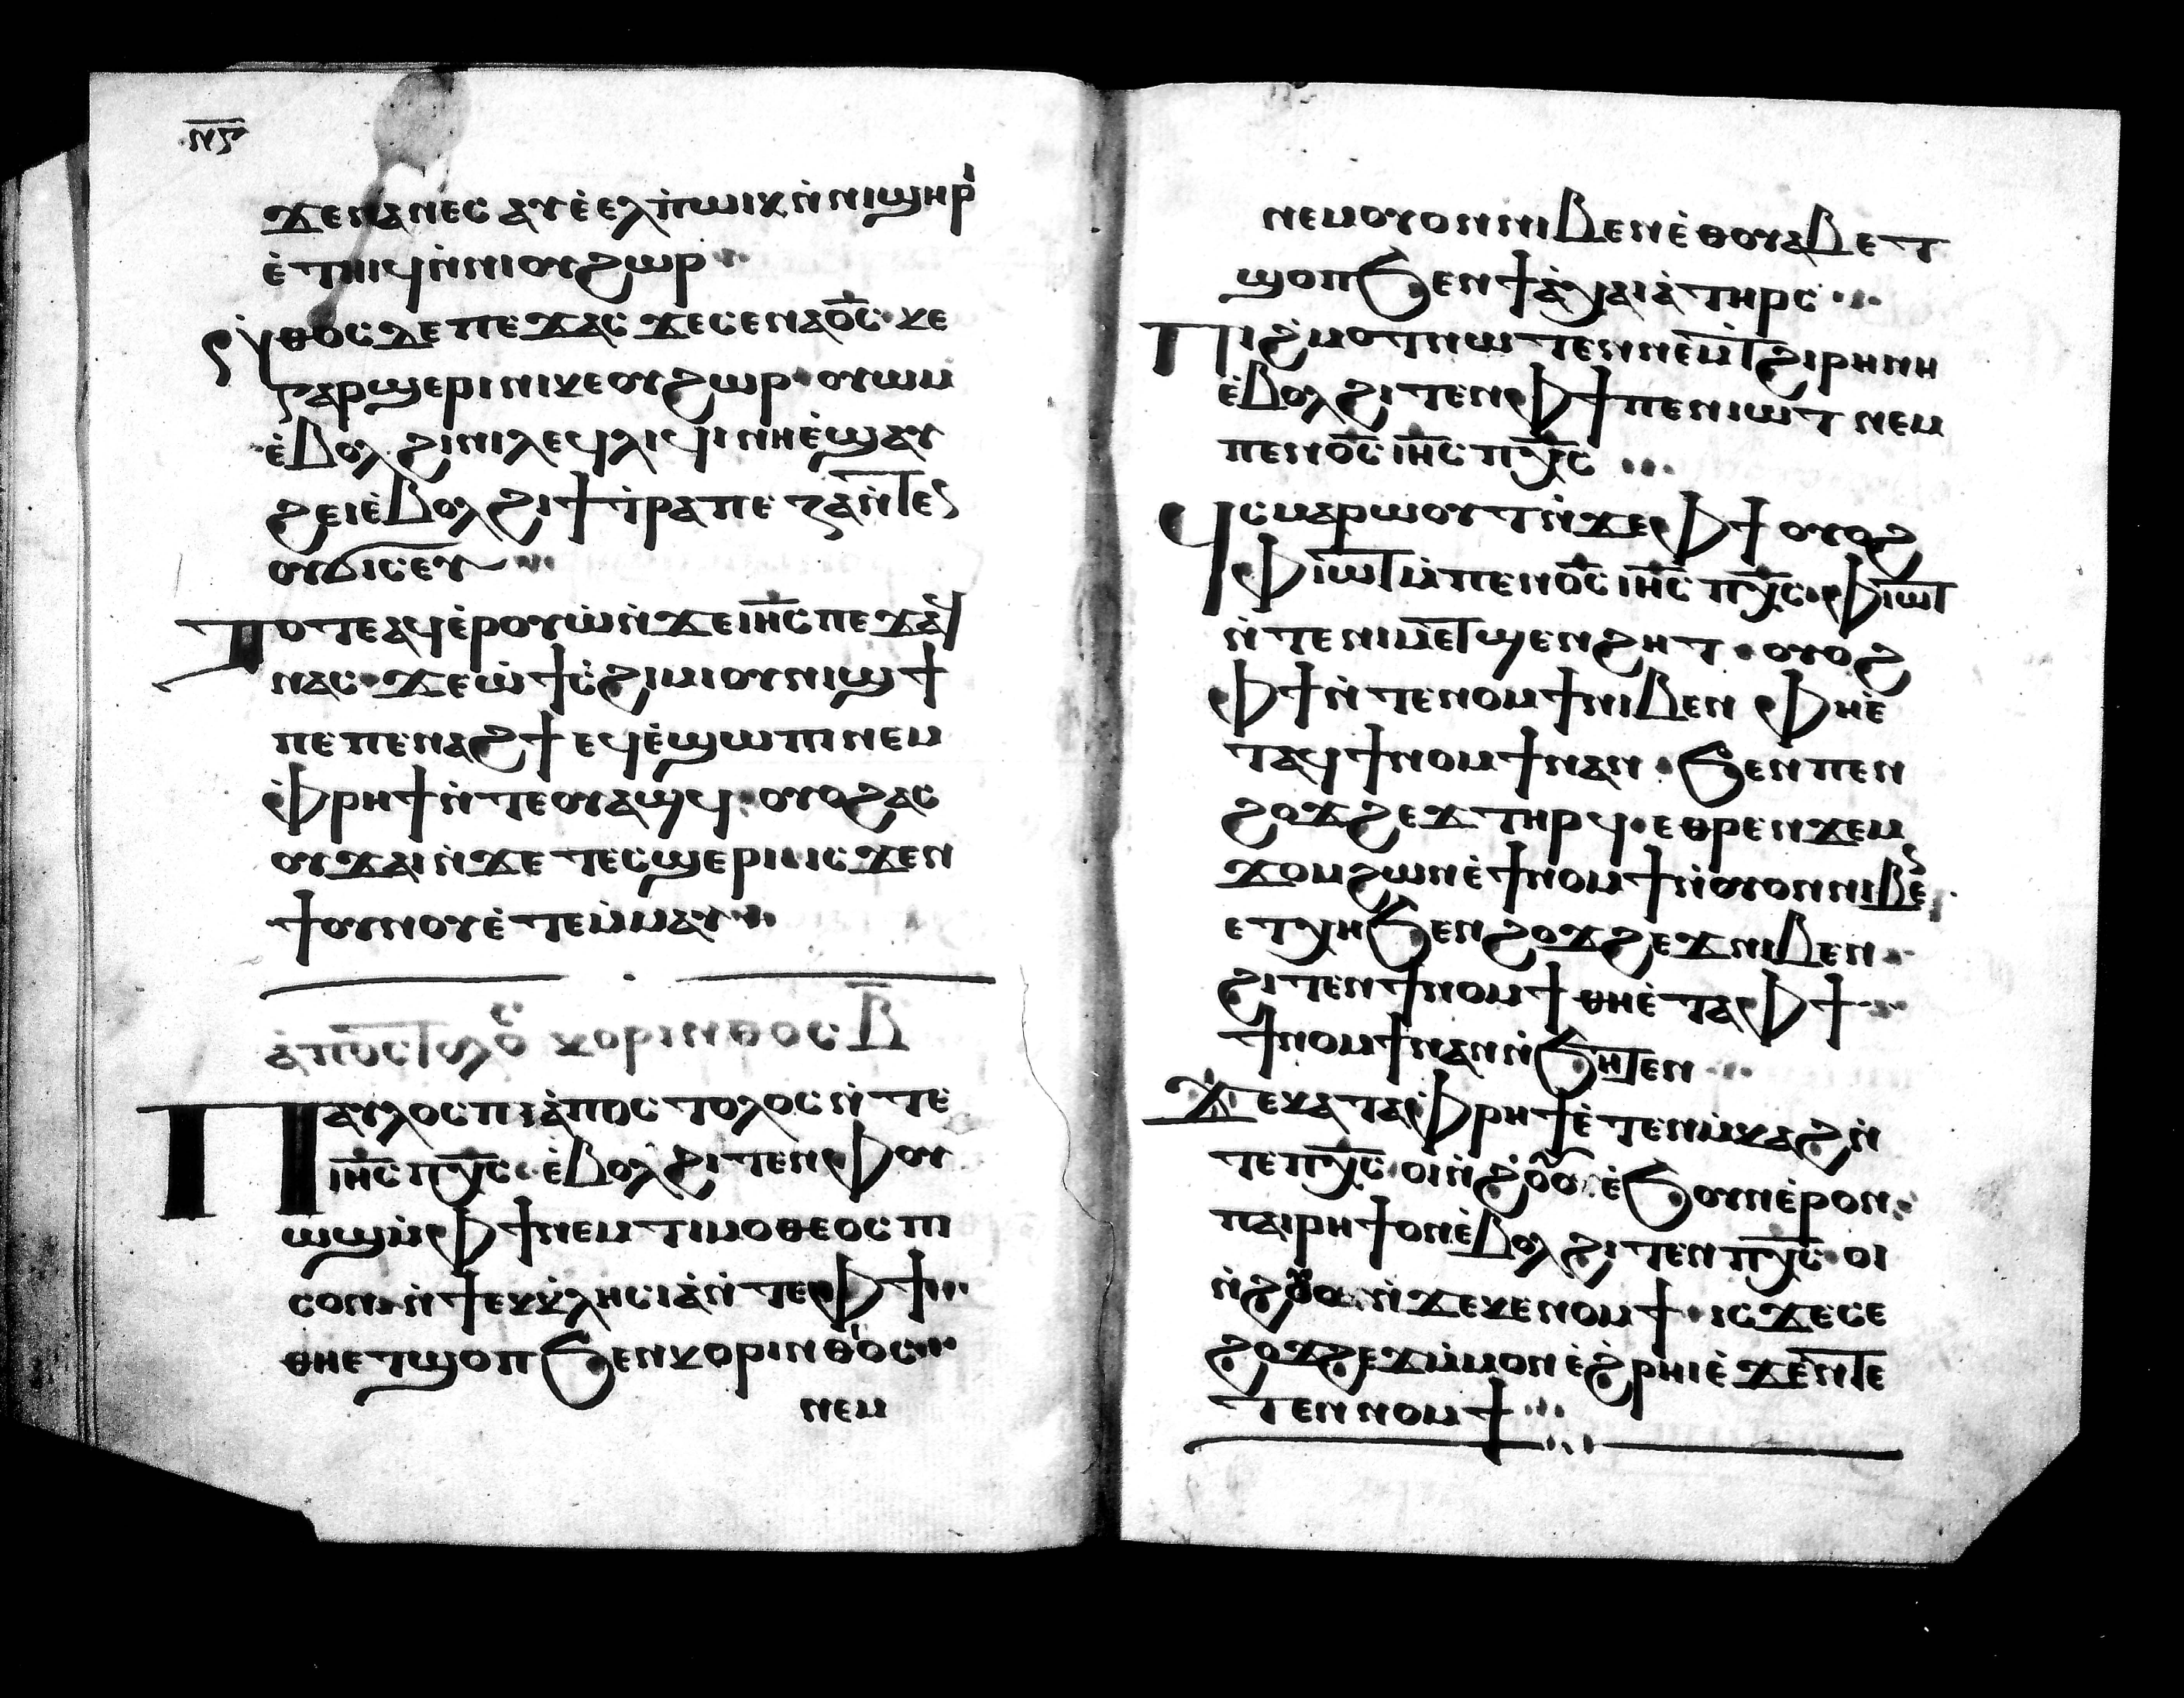 ⲛ̅ⲋ̅
ϫⲉⲛⲁⲛⲉⲥ ⲁⲩ ⲉ̀ⲉⲗⲡ̀ⲱⲓⲕ ⲛ̀ⲛⲓϣⲏⲣ
ⲉ̀ⲧⲏⲓϥ ⲛ̀ⲛⲓⲟⲩϩⲱⲣ
ⲛ̀ⲑⲟⲥ ⲇⲉ ⲡⲉϫⲁⲥ ϫⲉ ⲥⲉ ⲛⲁⲟ̅ⲥ̅ ⲕⲉ
ⲅⲁⲣ ϣⲉⲣⲓ ⲛⲓⲕⲉⲟⲩϩⲱⲣ ⲟⲩⲱⲙ
ⲉ̀ⲃⲟⲗ ϩⲓ ⲛⲓⲗⲉϥⲗⲓϥⲓ ⲛⲏⲉ̀ϣⲁⲩ
ϩⲉⲓ ⲉ̀ⲃⲟⲗ ϩⲓ ϯⲧ̀ⲣⲁⲡⲉⲍⲁ ⲛ̀ⲧⲉ
ⲟⲩϭⲓⲥⲉⲩ
ⲧⲟⲧⲉ ⲁϥⲉ̀ⲣⲟⲩⲱ̀ ⲛ̀ϫⲉ ⲓⲏ̅ⲥ̅ ⲡⲉϫⲁϥ
ⲛⲁⲥ ϫⲉ ⲱ̀ ϯⲥ̀ϩⲓⲙⲓ ⲟⲩⲛⲓϣϯ
ⲡⲉ ⲡⲉⲛⲁϩϯ ⲉϥⲉ̀ϣⲱⲡⲓ ⲛⲉⲙ
ⲫ̀ⲣⲏϯ ⲛ̀ⲧⲉⲟⲩⲁϣϥ ⲟⲩⲟϩ ⲁⲥ
ⲟⲩϫⲁⲓ ⲛ̀ϫⲉ ⲧⲉⲥϣⲉⲣⲓ ⲓⲥϫⲉⲛ
ϯⲟⲩⲛⲟⲩ ⲉ̀ⲧⲉⲙ̀ⲙⲁⲩ
ⲕⲟⲣⲓⲛⲑⲟⲥ ⲃ̅
ⲡⲁⲩⲗⲟⲥ ⲡⲓⲁ̀ⲡⲟⲥⲧⲟⲗⲟⲥ ⲛ̀ⲧⲉ
ⲓⲏ̅ⲥ̅ ⲡⲭ̅ⲥ̅ ⲉ̀ⲃⲟⲗ ϩⲓⲧⲉⲛ ⲫⲟⲩ
ⲱϣ ⲙ̀ⲫϯ ⲛⲉⲙ ⲧⲓⲙⲟⲑⲉⲟⲥ ⲡⲓ
ⲥⲟⲛ ⲛ̀ϯⲉⲕⲕ̀ⲗⲏⲥⲓⲁ̀ ⲛ̀ⲧⲉ ⲫϯ
ⲑⲏⲉⲧϣⲟⲡ ϧⲉⲛ ⲕⲟⲣⲓⲛⲑⲟⲥ
ⲛⲉⲙ
ⲛⲉⲙ ⲟⲩⲟⲛ ⲛⲓⲃⲉⲛ ⲉ̀ⲑⲟⲩⲁⲃ ⲉⲧ
ϣⲟⲡ ϧⲉⲛ ϯⲁ̀ⲭⲁⲓⲁ̀ ⲧⲏⲣⲥ
ⲡⲓϩ̀ⲙⲟⲧ ⲛⲱⲧⲉⲛ ⲛⲉⲙ ⲧ̀ϩⲓⲣⲏⲛⲏ
ⲉ̀ⲃⲟⲗ ϩⲓⲧⲉⲛ ⲫϯ ⲡⲉⲛⲓⲱⲧ ⲛⲉⲙ
ⲡⲉⲛⲟ̅ⲥ̅ ⲓⲏ̅ⲥ̅ ⲡⲭ̅ⲥ̅
ϥⲥⲙⲁⲣⲱⲟⲩⲧ ⲛ̀ϫⲉ ⲫϯ ⲟⲩⲟϩ
ⲫⲓⲱⲧ ⲙ̀ⲡⲉⲛⲟ̅ⲥ̅ ⲓⲏ̅ⲥ̅ ⲡⲭ̅ⲥ̅ ⲫⲓⲱⲧ
ⲛ̀ⲧⲉ ⲛⲓⲙⲉⲧϣⲉⲛϩⲏⲧ ⲟⲩⲟϩ
ⲫϯ ⲛ̀ⲧⲉ ⲛⲟⲙϯ ⲛⲓⲃⲉⲛ ⲫⲏⲉ̀
ⲧⲁϥϯⲛⲟⲙϯ ⲛⲁⲛ ϧⲉⲛ ⲡⲉⲛ
ϩⲟϫϩⲉϫ ⲧⲏⲣϥ ⲉⲑⲣⲉⲛϫⲉⲙ
ϫⲟⲙ ϩⲱⲛ ⲉ̀ϯⲛⲟⲙϯ ⲛ̀ⲟⲩⲟⲛ ⲛⲓⲃⲉ
ⲉⲧⲭⲏ ϧⲉⲛ ϩⲟϫϩⲉϫ ⲛⲓⲃⲉⲛ
ϩⲓⲧⲉⲛ ϯⲛⲟⲙϯ ⲑⲏⲉ̀ⲧⲁ ⲫϯ
ϯⲛⲟⲙϯ ⲛⲁⲛ ⲛ̀ϧⲏⲧⲉⲛ
ϫⲉ ⲕⲁⲧⲁ ⲫ̀ⲣⲏϯ ⲉ̀ⲧⲉ ⲛⲓⲙ̀ⲕⲁϩ ⲛ̀
ⲧⲉ ⲡⲭ̅ⲥ̅ ⲟⲓ ⲛ̀ϩⲟⲩⲟ ⲉ̀ϧⲟⲩⲛ ⲉ̀ⲣⲟⲛ
ⲡⲁⲓⲣⲏϯ ⲟⲛ ⲉ̀ⲃⲟⲗ ϩⲓⲧⲉⲛ ⲡⲭ̅ⲥ̅ ⲟⲓ
ⲛ̀ϩⲟⲩⲟ ⲛ̀ϫⲉ ⲕⲉⲛⲟⲙϯ ⲓⲥϫⲉ ⲥⲉ
ϩⲟϫϩⲉϫ ⲙ̀ⲙⲟⲛ ⲉ̀ϩ̀ⲣⲏⲓ ⲉ̀ϫⲉⲛ ⲧⲉ
ⲧⲉⲛⲛⲟⲙϯ